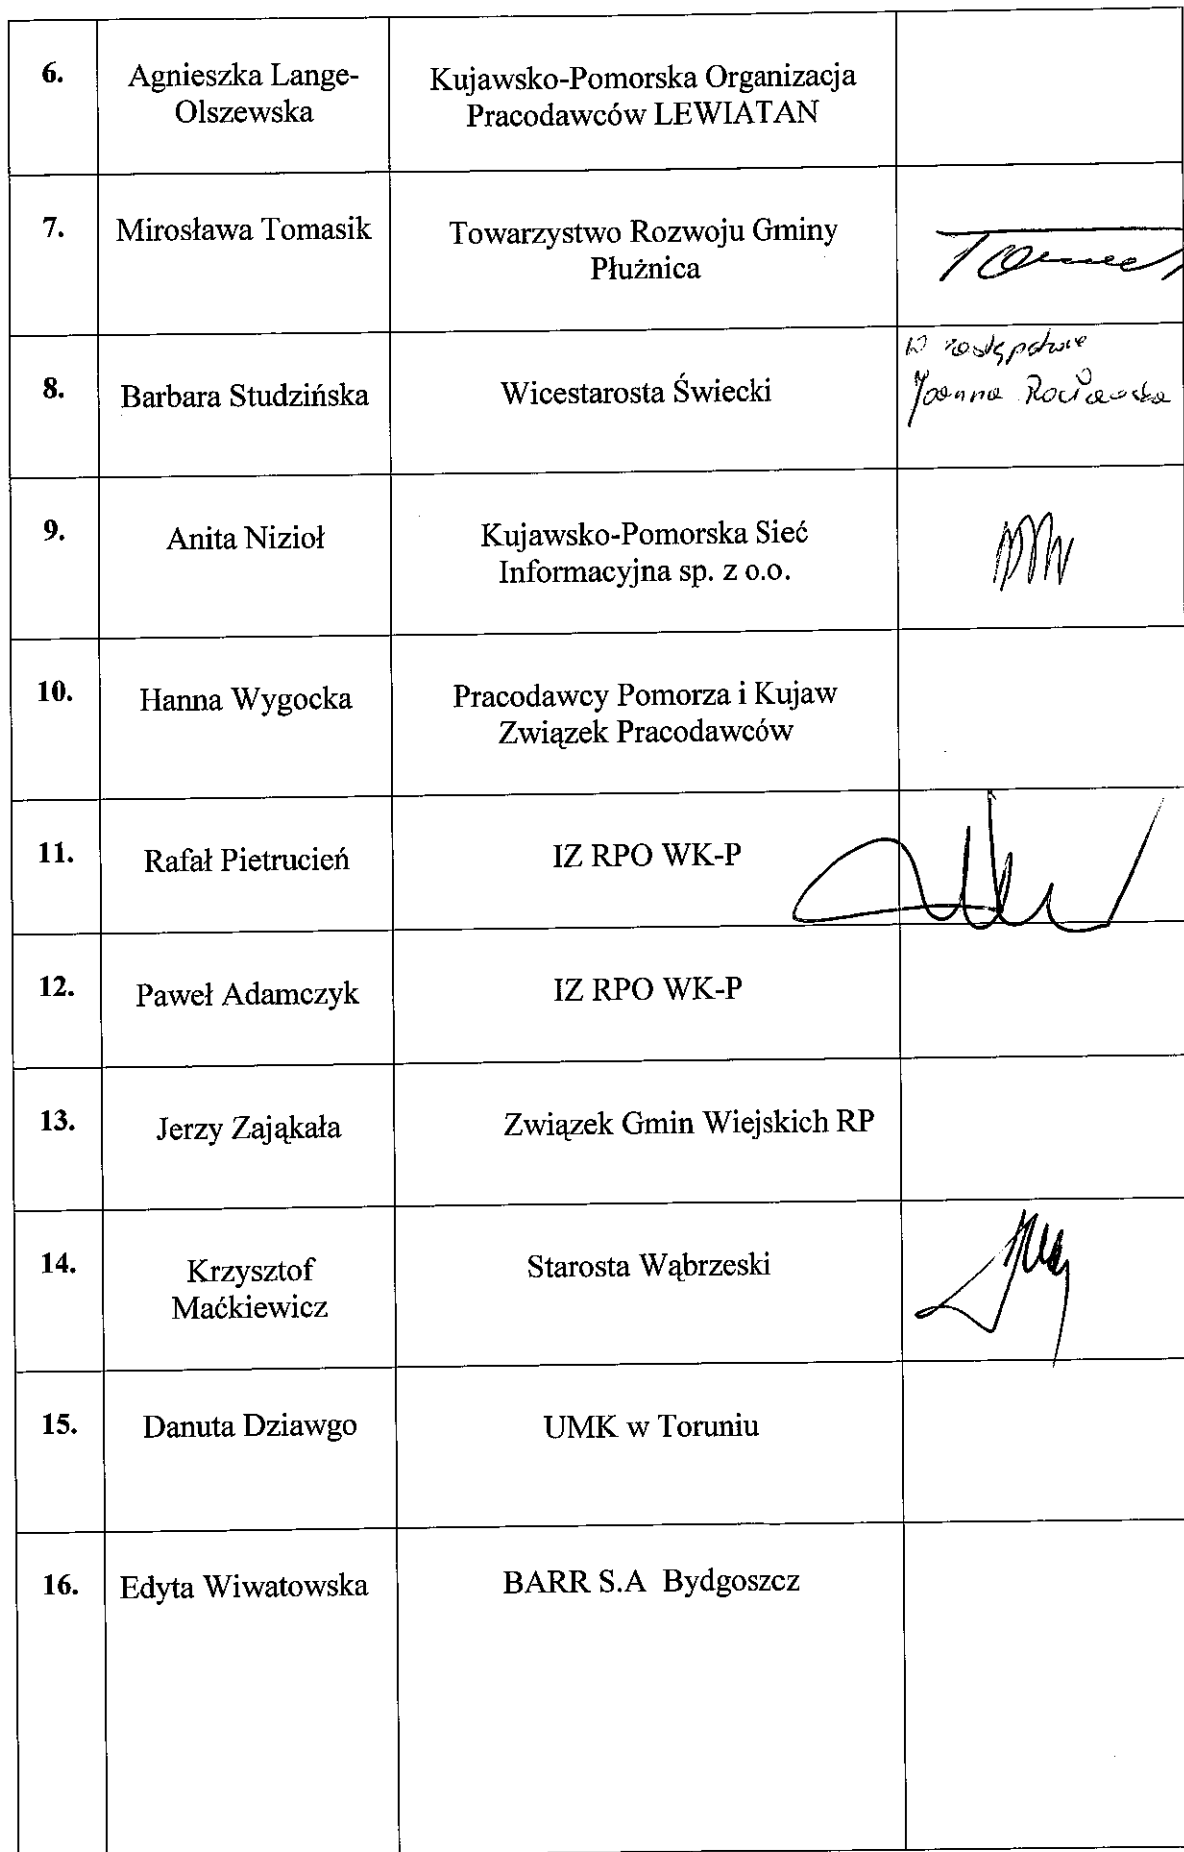 6.
Agnieszka Lange-
Olszewska
Kujawsko-Pomorska Organizacja
Pracodawców LEWIATAN
7.
Mirosława Tomasik
Towarzystwo Rozwoju Gminy
Płużnica
8.
Barbara Studzińska
Wicestarosta Świecki
W zastępstwie
Joanna
9.
Anita Nizioł
Kujawsko-Pomorska Sieć
Informacyjna sp. z o.o.
10.
Hanna Wygocka
Pracodawcy Pomorza i Kujaw
Związek Pracodawców
11.
Rafał Pietrucień
IZ RPO WK-P
12.
Paweł Adamczyk
IZ RPO WK-P
13.
Jerzy Zająkała
Związek Gmin Wiejskich RP
14.
Krzysztof
Maćkiewicz
Starosta Wąbrzeski
15.
Danuta Dziawgo
UMK w Toruniu
16.
Edyta Wiwatowska
BARR S.A Bydgoszcz